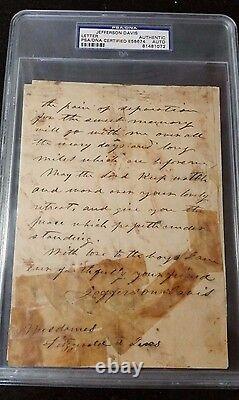 PSA/DNA
JEFFERSON DAVIS
LETTER AUTHENTIC
PSA/DNA CERTIFIED AUTO
81481072
the pain of separation
for the sweet memory
will go with me over all
the many days and long
miles which are before me
May the Lord keep watch
and ward over your lovely
retreat, and give you the
peace which passeth under
standing.
With love to the boys I am
ever faithfully your friend
Jefferson Davis
Mesdames